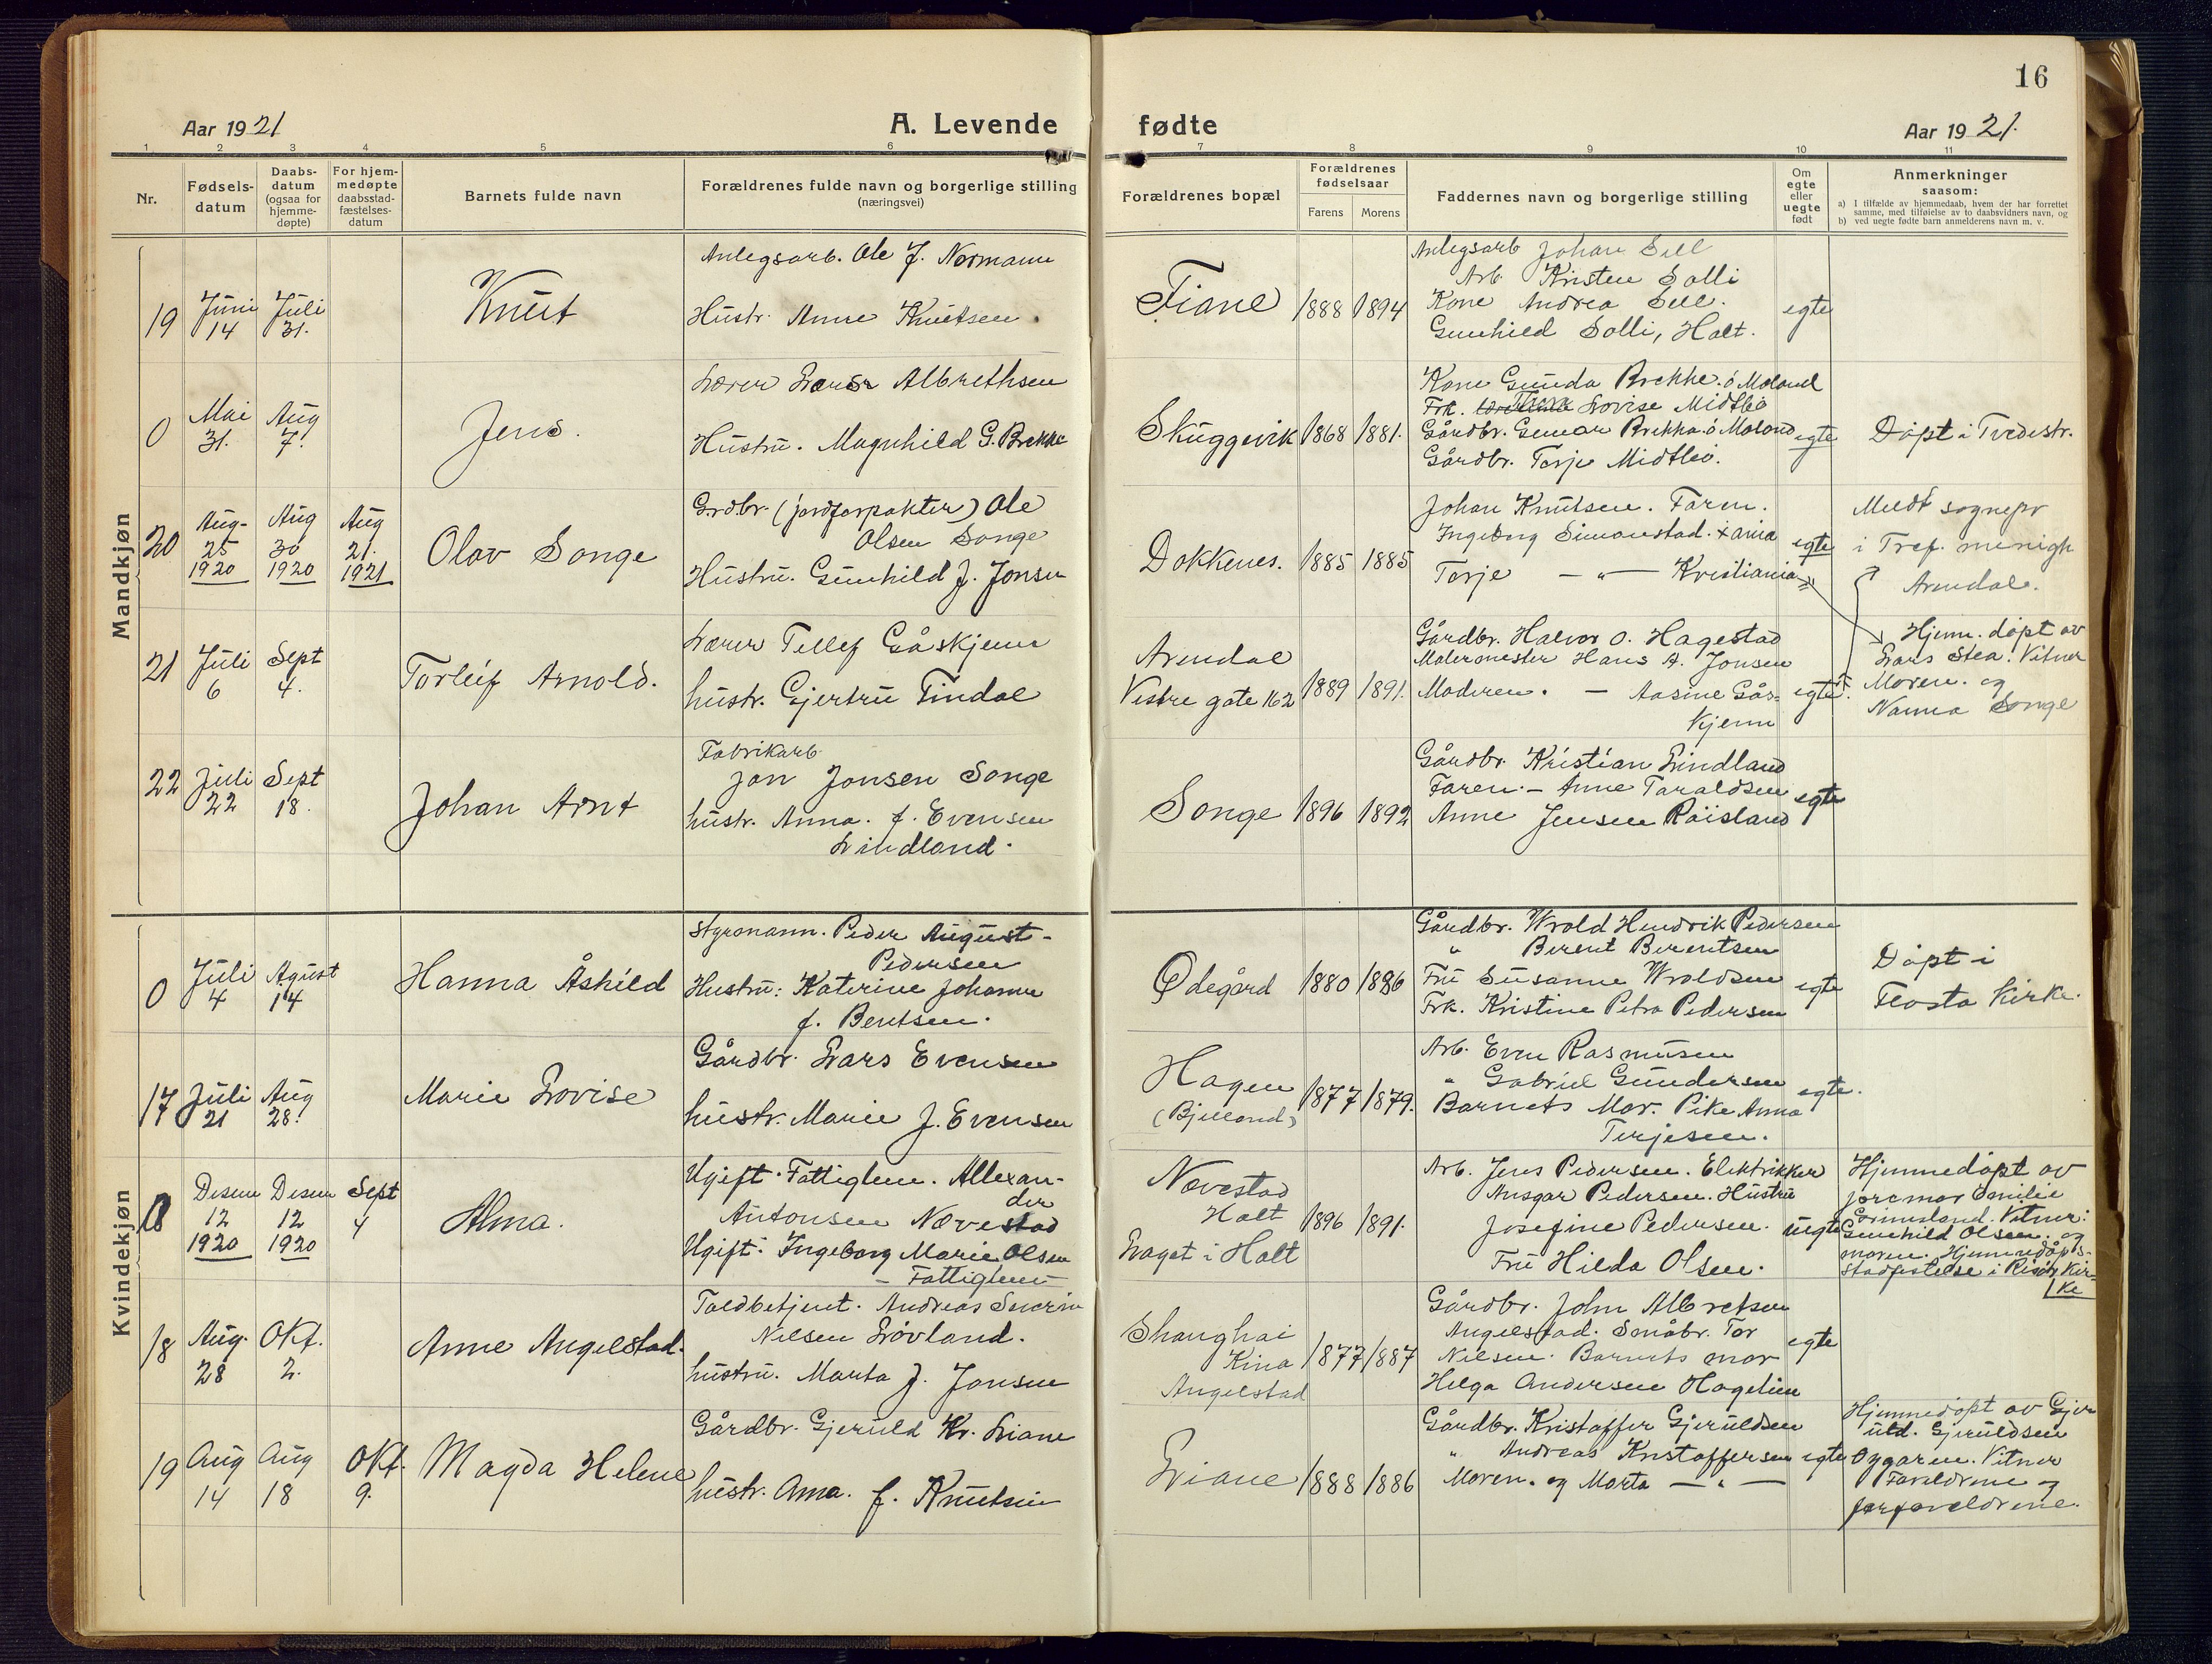 16
Aar 1921
A. Levende
fødte
Aar 1921.
1 2 3 4 5 6 7 8 9 10 11
Nr.
Fødsels-
datum
Daabs-
datum
(ogsaa for
hjemme-
døpte)
For hjem-
medøpte
daabsstad-
fæstelses-
datum
Barnets fulde navn
Forældrenes fulde navn og borgerlige stilling
(næringsvei)
Forældrenes bopæl
Forældrenes
fødselsaar
Farens Morens
Faddernes navn og borgerlige stilling
Om
egte
eller
uegte
født
Anmerkninger
saasom:
a) I tilfælde av hjemmedaab, hvem der har forrettet
samme, med tilføielse av to daabsvidners navn, og
b) ved uegte fødte barn anmelderens navn m. v.
Mandkjøn
19
Juni
14
Juli
31.
Knut
Anlegsarb. Ole J. Normann
Hustr. Anne Knutsen.
Fiane
1888 1894
Anlegsarb Johan Sell
Arb. Kristen Solli
Kone Andrea Sell.
Gunhild Solli, Holt.
egte
0
Mai
31.
Aug
7.
Jens.
Lærer Lars Albrethsen
Hustru. Magnhild G. Brekke
Skuggevik
1868 1881.
Kone Gunda Brekke. ö Moland
Frk. Lovise Midtbö
Gårdbr. Gunnar Brekka. ö Moland
Gårdbr. Terje Midtbö.
egte
Döpt i Tvedestr.
20
Aug-
25
1920
Aug
30
1920
Aug
21.
1921
Olav Songe
Grdbr. (jordforpakter) Ole
Olsen Songe
Hustru. Gunhild J. Jonsen
Dokkenes.
1885 1885
Johan Knutsen. Faren.
Ingeborg Simonstad. Xania
Terje — " — Kristiania
egte
Meldt sognepr
i Tref. menigh
Arendal.
Hjem. döpt av
Lars Stea. Vitner
Moren. og
Nanna Songe
21
Juli
6
Sept
4.
Torleif Arnold.
Lærer Tellef Gåskjenn
hustr. Gjertru Tindal
Arendal
Vestre gate 162
1889 1891.
Gårdbr. Halvor O. Hagestad
Malermester Hans A. Jonsen
Moderen. — Aasine Gås-
kjenn
egte
22
Juli
22
Sept
18.
Johan Arnt
Fabrikarb.
Jon Jonsen Songe
hustr. Anna. f. Evensen
Lindland.
Songe
1896 1892
Gårdbr. Kristian Lindland
Faren. — Anne Taraldsen
Anne Jensen Röisland
egte
Kvindekjøn
0
Juli
4
Agust
14
Hanna Åshild
Styrmann. Peder August-
Pedersen
Hustru: Katerine Johanne
f. Bentsen.
Ødegård
1880 1886
Gårdbr. Wrold Hendrik Pedersen
" Berent Berentsen
Fru Susanne Wroldsen
Frk. Kristine Petra Pedersen
egte
Döpt i
Flosta Kirke.
17
Juli
21
Aug
28.
Marie Lovise
Gårdbr. Lars Evensen
hustr. Marie J. Evensen
Hagen
(Bjelland)
1877 1879.
Arb. Even Rasmusen
" Gabriel Gundersen
Barnets Mor. Pike Anna
Terjesen.
egte.
0
Desem
12
1920
Desem
12
1920
Sept
4
Alma.
Ugift. Fattiglem. Allexan-
der
Antonsen Nævestad
Ugift. Ingeborg Marie Olsen
— Fattiglem —
Nævestad
Holt
Laget i Holt
1896 1891.
Arb. Jens Pedersen. Elektrikker
Ansgar Pedersen. Hustru
Josefine Pedersen.
Fru Hilda Olsen.
uegte
Hjemmedöpt av
jormor Emilie
Grimesland. Vitner:
Gunhild Olsen. og
moren. Hjemmedåps-
stadfestelse i Risör Kir-
ke
18
Aug.
28
Okt.
2.
Anne Angelstad.
Toldbetjent. Andreas Severin
Nilsen Lövland.
hustru. Marta J. Jonsen
Shanghai
Kina
Angelstad
1877 1887
Gårdbr. John Albretsen
Angelstad. Småbr. Tor
Nilsen. Barnets mor
Helga Andersen Hagelien
egte
19
Aug
14
Aug
18
Okt.
9.
Magda Helene
Gårdbr. Gjeruld Kr. Liane
hustr. Anna. f. Knutsen
Liane
1888 1886
Gårdbr. Kristoffer Gjeruldsen
" Andreas Kristoffersen
Moren. og Marta — " —
egte
Hjemmedöpt av Gjer
uld. Gjeruldsen
Oggaren. Vitner
Foreldrene og
forforeldrene.